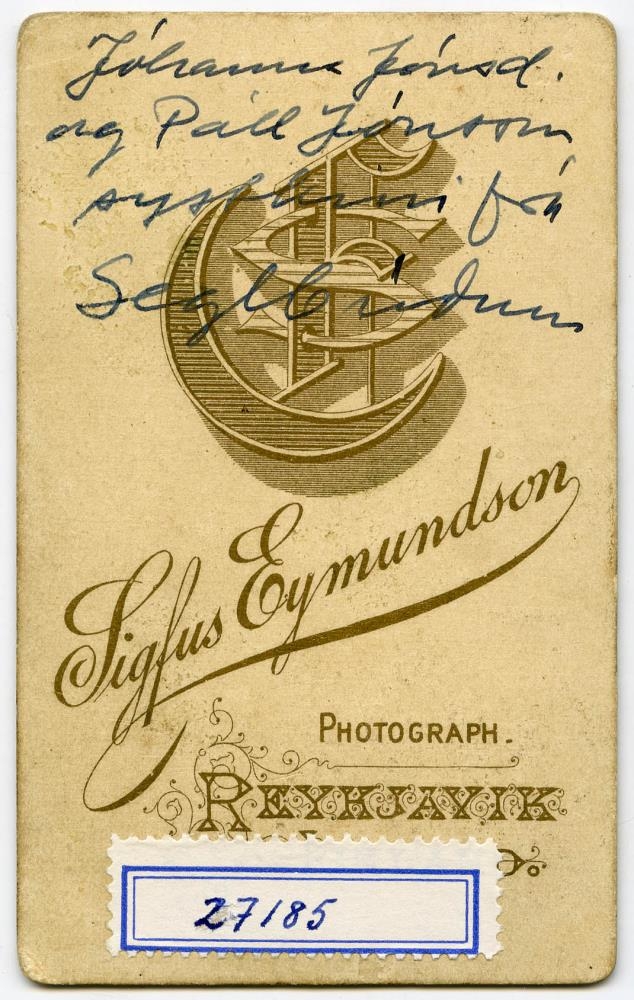 Jóhanna Jónsd.
og Páll Jónsson
systkini frá
Seglbúðum
Sigfus Eymundson
PHOTOGRAPH.
REYKJAVIK
27185